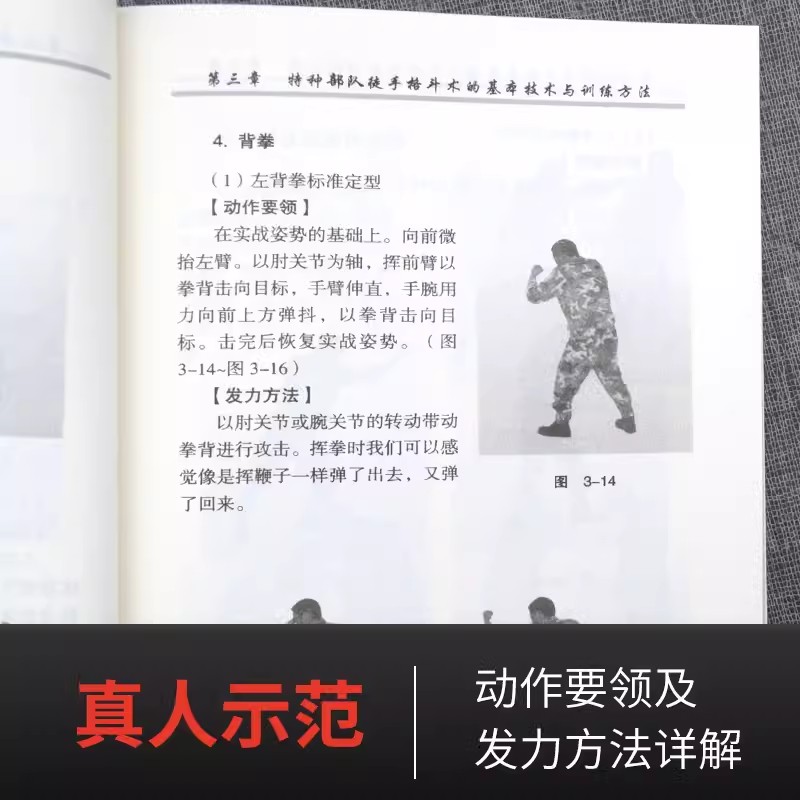 第三章 特种部队徒手格斗术的基本技术与训练方法
4. 背拳
（1）左背拳标准定型
【动作要领】
在实战姿势的基础上。向前微
抬左臂。以肘关节为轴，挥前臂以
拳背击向目标，手臂伸直，手腕用
力向前上方弹抖，以拳背击向目
标。击完后恢复实战姿势。（图
3-14~图3-16）
【发力方法】
以肘关节或腕关节的转动带动
拳背进行攻击。挥拳时我们可以感
觉像是挥鞭子一样弹了出去，又弹
了回来。
图 3-14
真人示范
动作要领及
发力方法详解